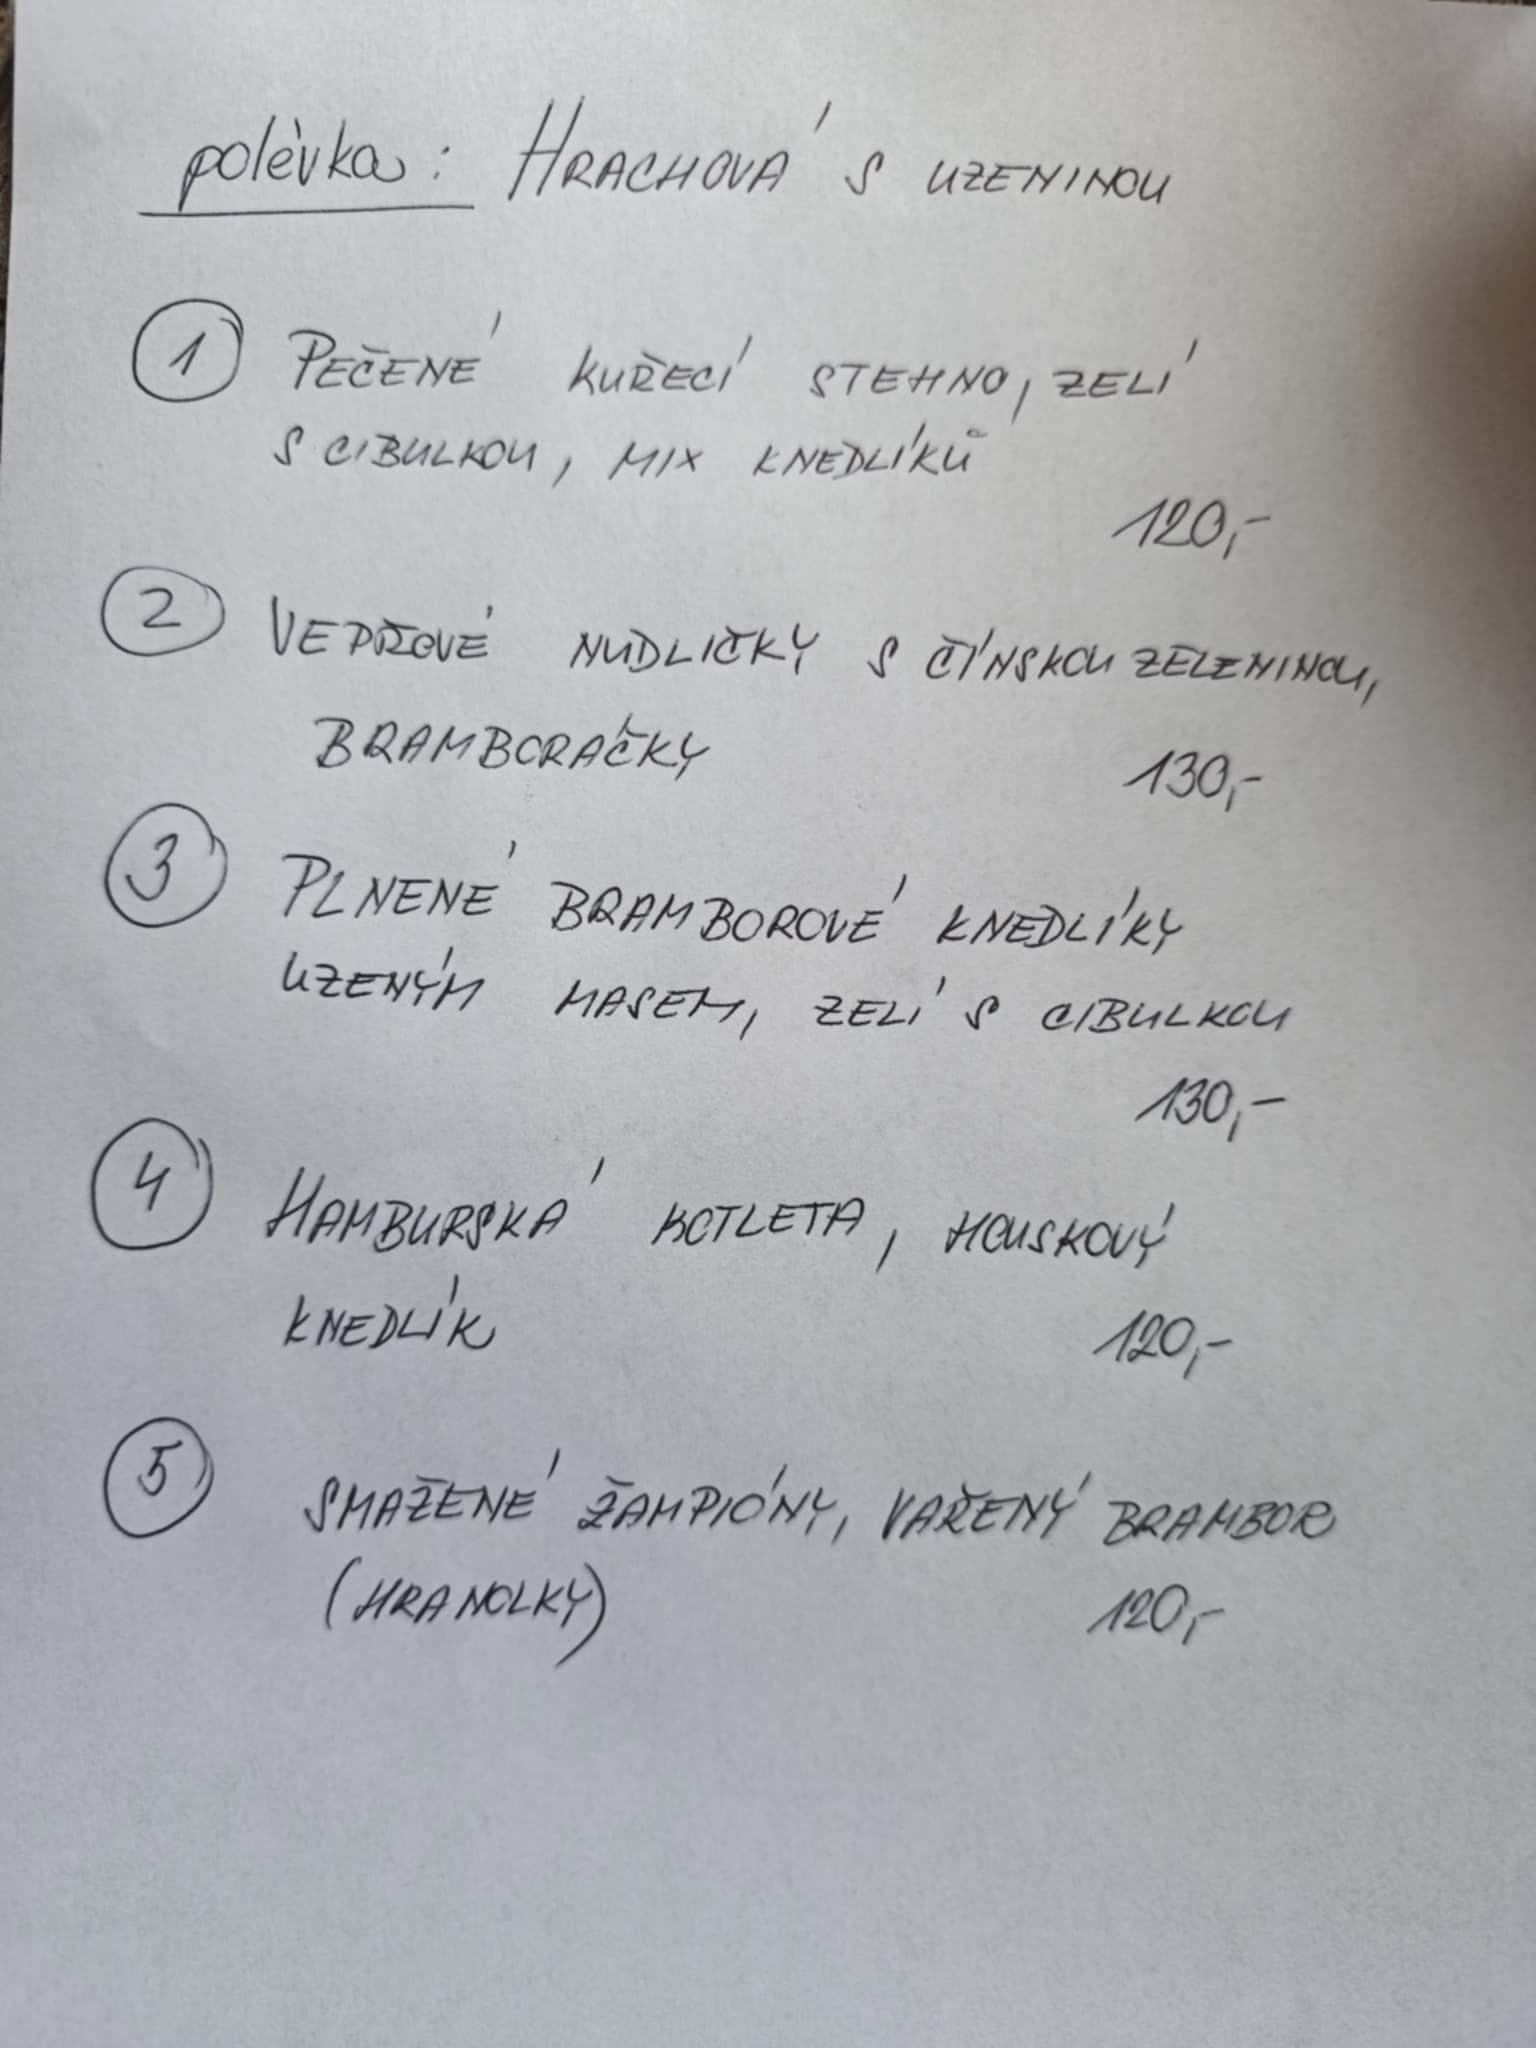 polévka: HRACHOVÁ S UZENINOU
1 PEČENÉ KUŘECÍ STEHNO, ZELÍ
S CIBULKOU, MIX KNEDLÍKŮ
120,-
2 VEPŘOVÉ NUDLIČKY S ČÍNSKOU ZELENINOU,
BRAMBORAČKY 130,-
3 PLNENÉ BRAMBOROVÉ KNEDLÍKY
UZENÝM MASEM, ZELÍ S CIBULKOU
130,-
4 HAMBURSKÁ KOTLETA, HOUSKOVÝ
KNEDLÍK 120,-
5 SMAŽENÉ ŽAMPIÓNY, VAŘENÝ BRAMBOR
(HRANOLKY) 120,-